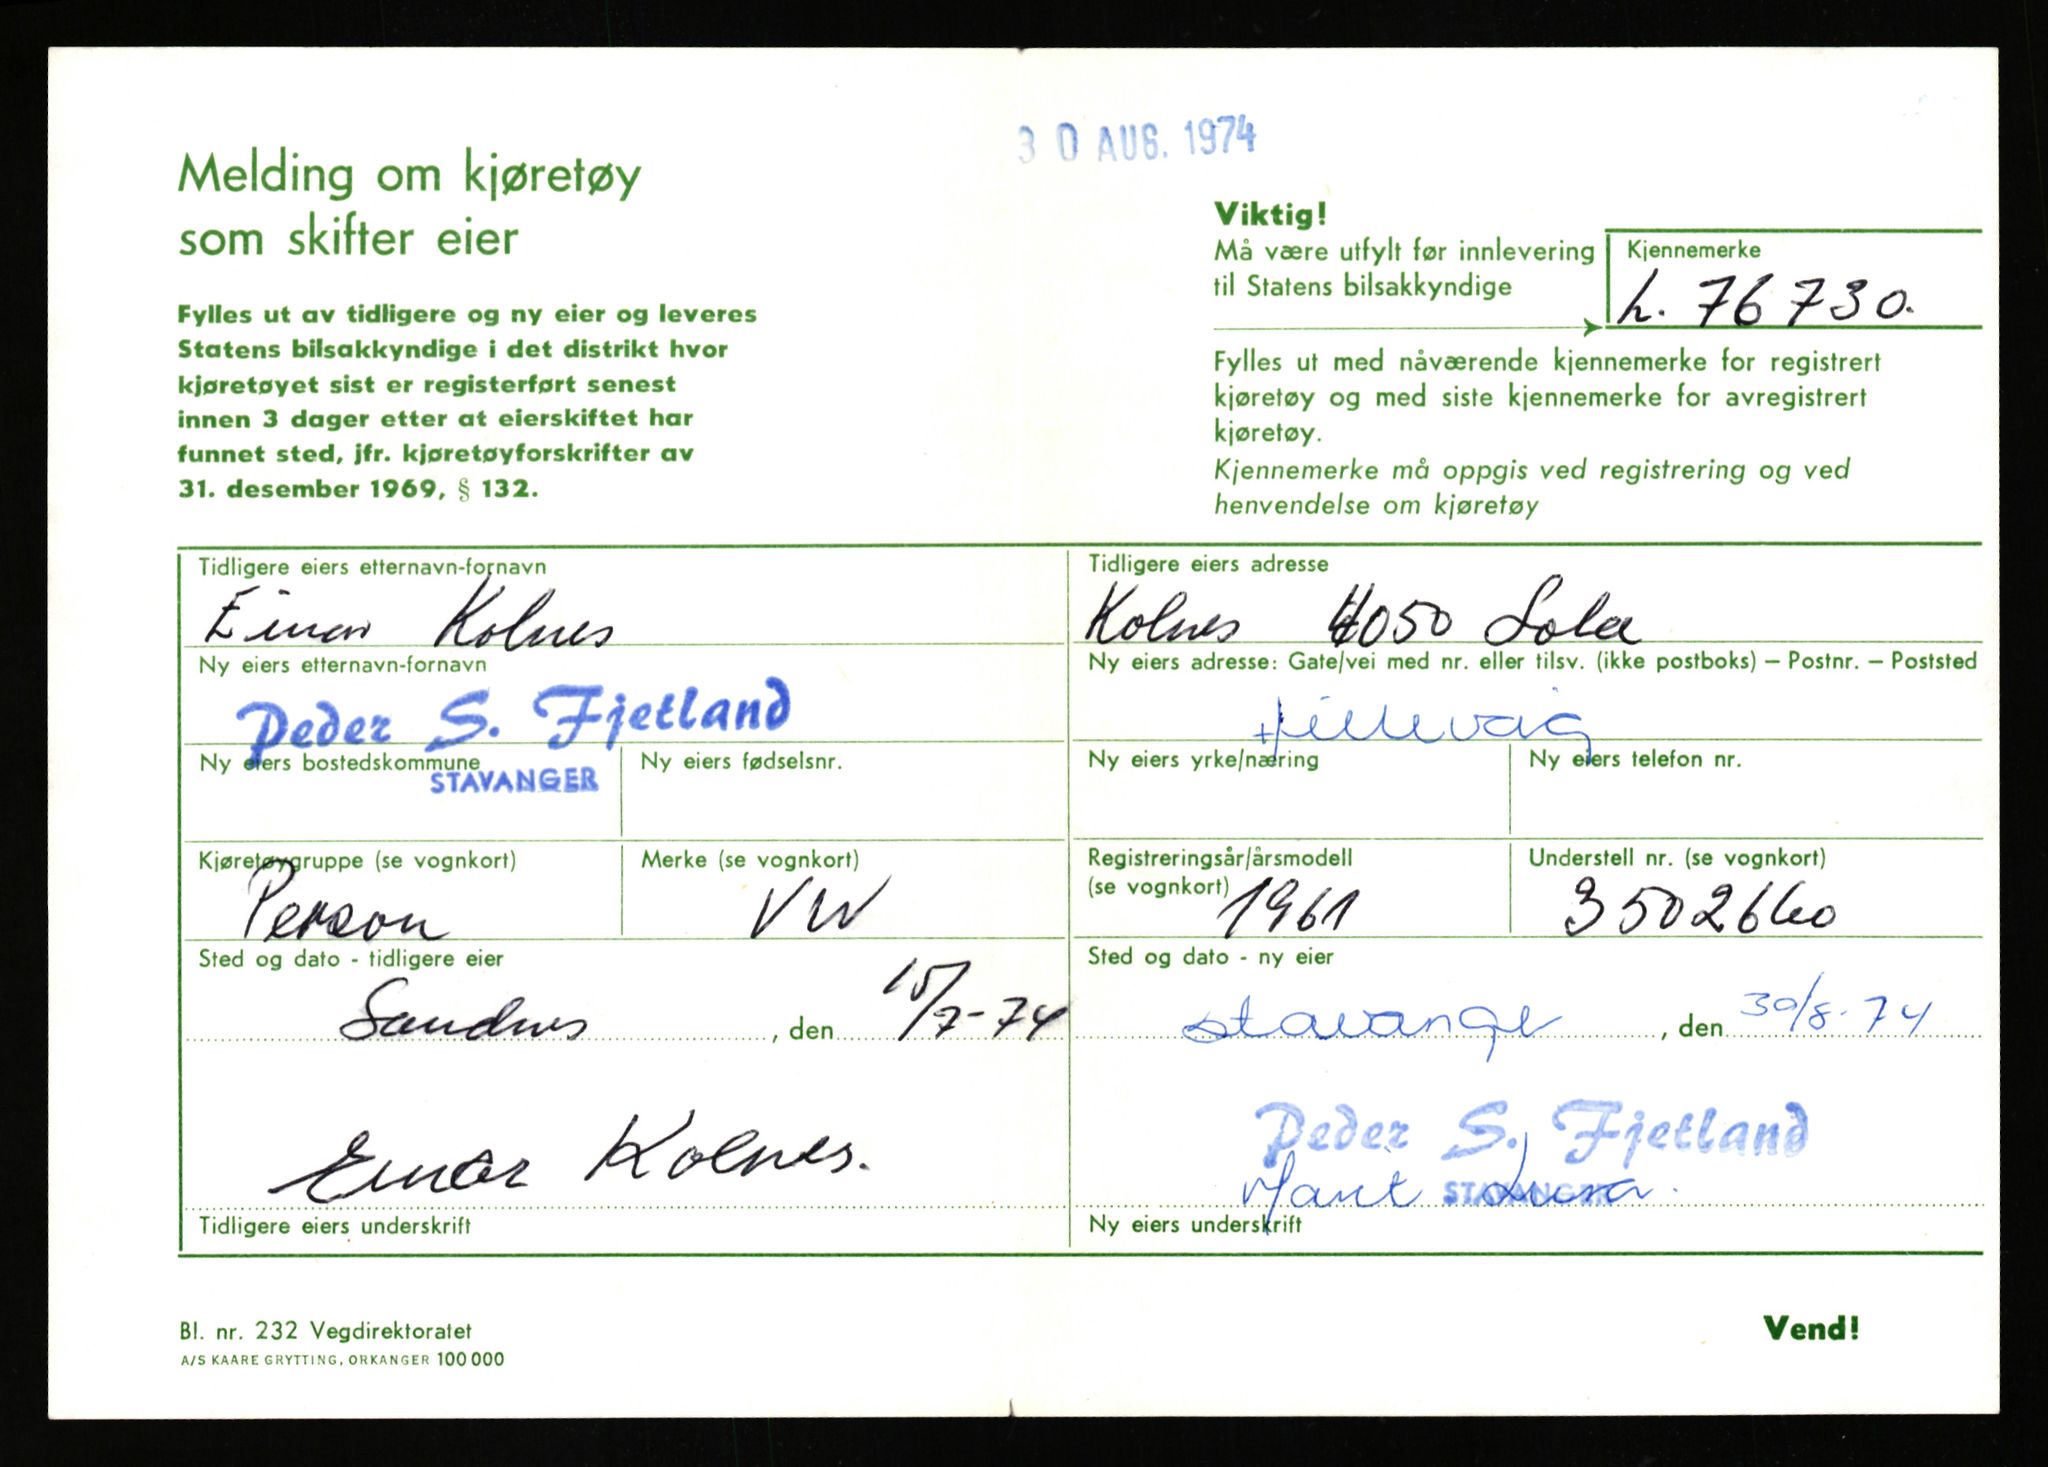 30 AUG. 1974
Melding om kjøretøy
som skifter eier
Fylles ut av tidligere og ny eier og leveres
Statens bilsakkyndige i det distrikt hvor
kjøretøyet sist er registerført senest
innen 3 dager etter at eierskiftet har
funnet sted, jfr. kjøretøyforskrifter av
31. desember 1969, § 132.
Viktig!
Må være utfylt før innlevering
til Statens bilsakkyndige
Kjennemerke
L. 76730.
Fylles ut med nåværende kjennemerke for registrert
kjøretøy og med siste kjennemerke for avregistrert
kjøretøy.
Kjennemerke må oppgis ved registrering og ved
henvendelse om kjøretøy
Tidligere eiers etternavn-fornavn
Einar Kolnes
Tidligere eiers adresse
Kolnes 4050 Sola
Ny eiers etternavn-fornavn
Peder S. Fjetland
Ny eiers adresse: Gate/vei med nr. eller tilsv. (ikke postboks) – Postnr. – Poststed
Hillevåg
Ny eiers bostedskommune
STAVANGER
Ny eiers fødselsnr.
Ny eiers yrke/næring
Ny eiers telefon nr.
Kjøretøygruppe (se vognkort)
Person
Merke (se vognkort)
VW
Registreringsår/årsmodell
(se vognkort) 1961
Understell nr. (se vognkort)
3502660
Sted og dato - tidligere eier
Sandnes, den 15/7-74
Sted og dato - ny eier
Stavanger, den 30/8-74
Einar Kolnes.
Tidligere eiers underskrift
Peder S. Fjetland
STAVANGER
Marit
Ny eiers underskrift
Bl. nr. 232 Vegdirektoratet
A/S KAARE GRYTTING, ORKANGER 100 000
Vend!